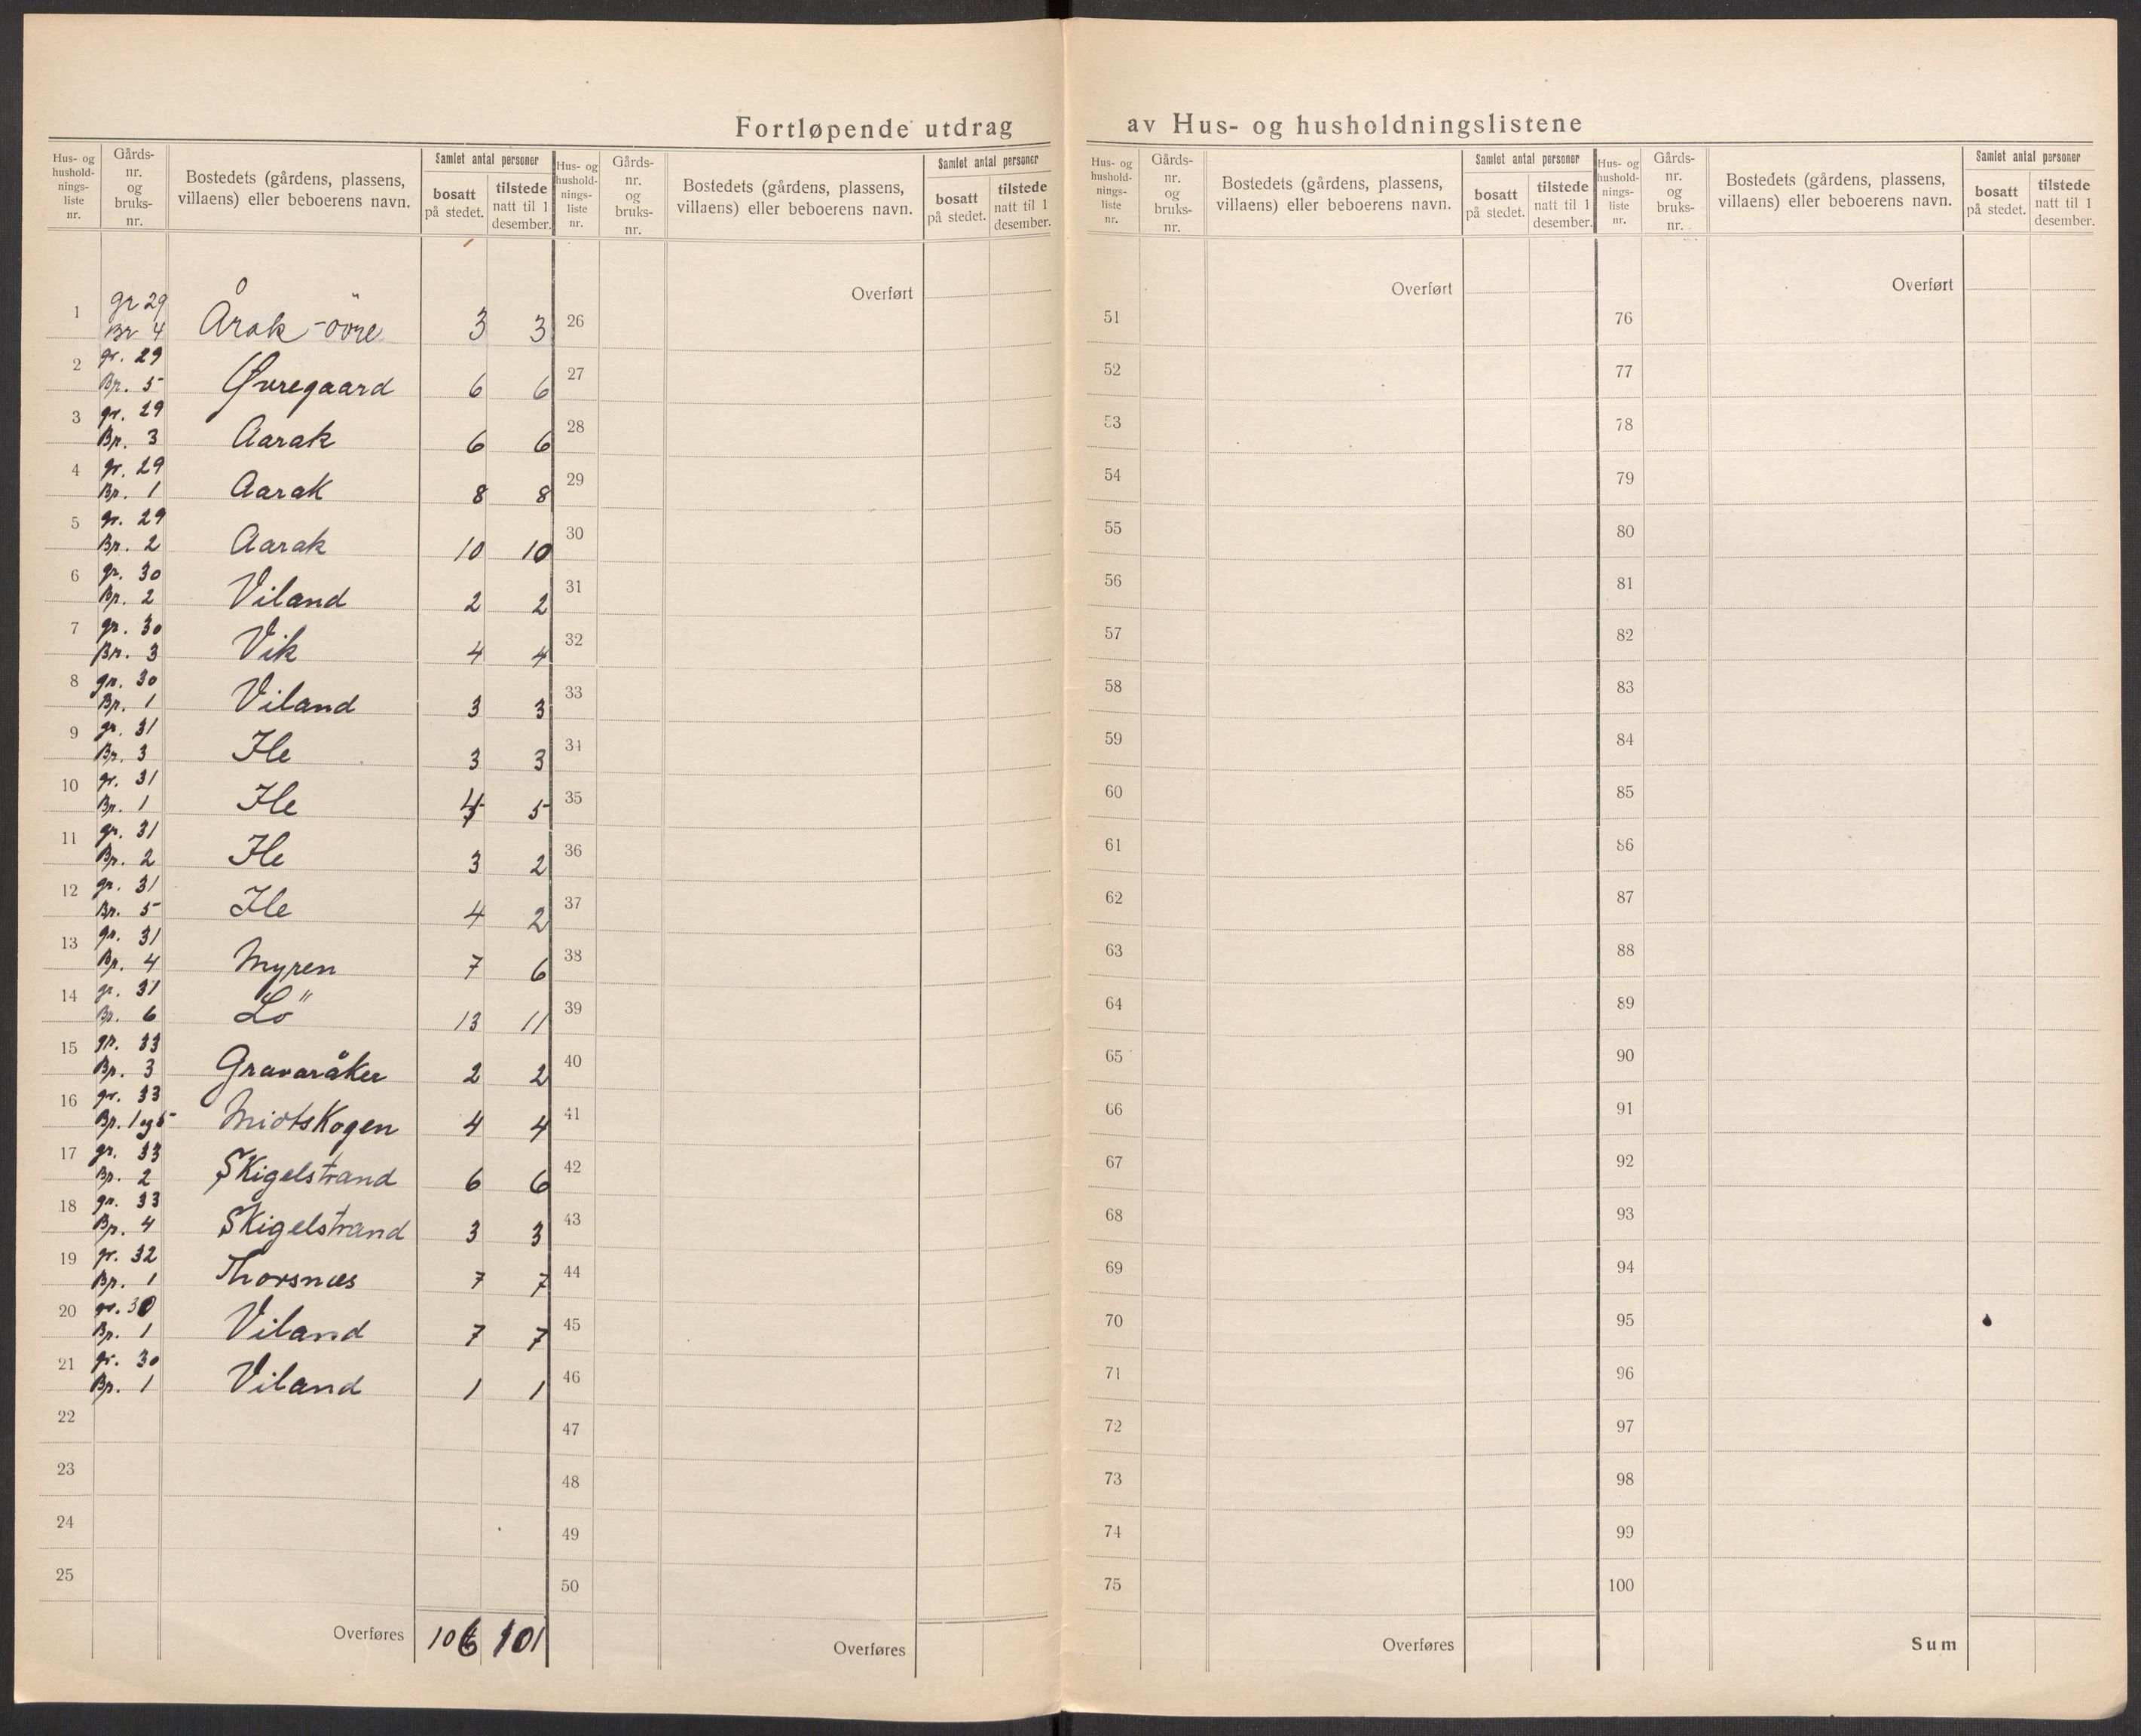 Fortløpende utdrag av Hus- og husholdningslistene
Hus- og husholdnings-liste nr. Gårds-nr. og bruks-nr. Bostedets (gårdens, plassens, villaens) eller beboerens navn. Samlet antal personer bosatt på stedet. tilstede natt til 1 desember.
Hus- og husholdnings-liste nr. Gårds-nr. og bruks-nr. Bostedets (gårdens, plassens, villaens) eller beboerens navn. Samlet antal personer bosatt på stedet. tilstede natt til 1 desember.
Hus- og husholdnings-liste nr. Gårds-nr. og bruks-nr. Bostedets (gårdens, plassens, villaens) eller beboerens navn. Samlet antal personer bosatt på stedet. tilstede natt til 1 desember.
Hus- og husholdnings-liste nr. Gårds-nr. og bruks-nr. Bostedets (gårdens, plassens, villaens) eller beboerens navn. Samlet antal personer bosatt på stedet. tilstede natt til 1 desember.
1 gr 29 Br 4 Årak-övre 3 3
2 gr. 29 Br. 5 Øvregaard 6 6
3 gr. 29 Br. 3 Aarak 6 6
4 gr. 29 Br. 1 Aarak 8 8
5 gr. 29 Br. 2 Aarak 10 10
6 gr. 30 Br. 2 Viland 2 2
7 gr. 30 Br. 3 Vik 4 4
8 gr. 30 Br. 1 Viland 3 3
9 gr. 31 Br. 3 Ile 3 3
10 gr. 31 Br. 1 Ile 5 5
11 gr. 31 Br. 2 Ile 3 2
12 gr. 31 Br. 5 Ile 4 2
13 gr. 31 Br. 4 Myren 7 6
14 gr. 31 Br. 6 Lö 13 11
15 gr. 33 Br. 3 Gravaråker 2 2
16 gr. 33 Br. 1 og 5 Midtskogen 4 4
17 gr. 33 Br. 2 Skigelstrand 6 6
18 gr. 33 Br. 4 Skigelstrand 3 3
19 gr. 32 Br. 1 Thorsnæs 7 7
20 gr. 30 Br. 1 Viland 7 7
21 gr. 30 Br. 1 Viland 1 1
22
23
24
25
Overføres 106 101
Overført
26
27
28
29
30
31
32
33
34
35
36
37
38
39
40
41
42
43
44
45
46
47
48
49
50
Overføres
Overført
51
52
53
54
55
56
57
58
59
60
61
62
63
64
65
66
67
68
69
70
71
72
73
74
75
Overføres
Overført
76
77
78
79
80
81
82
83
84
85
86
87
88
89
90
91
92
93
94
95
96
97
98
99
100
Sum